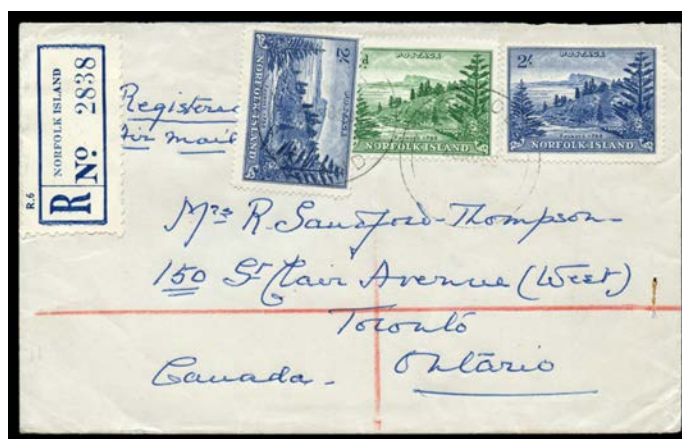 R.6
R
NORFOLK ISLAND
No 2838
Air mail
2/-
NORFOLK ISLAND
d
POSTAGE
NORFOLK ISLAND
2/-
POSTAGE
NORFOLK ISLAND
Mrs R. Sandford-Thompson-
150 St Clair Avenue (West)
Toronto
Ontario
Canada.